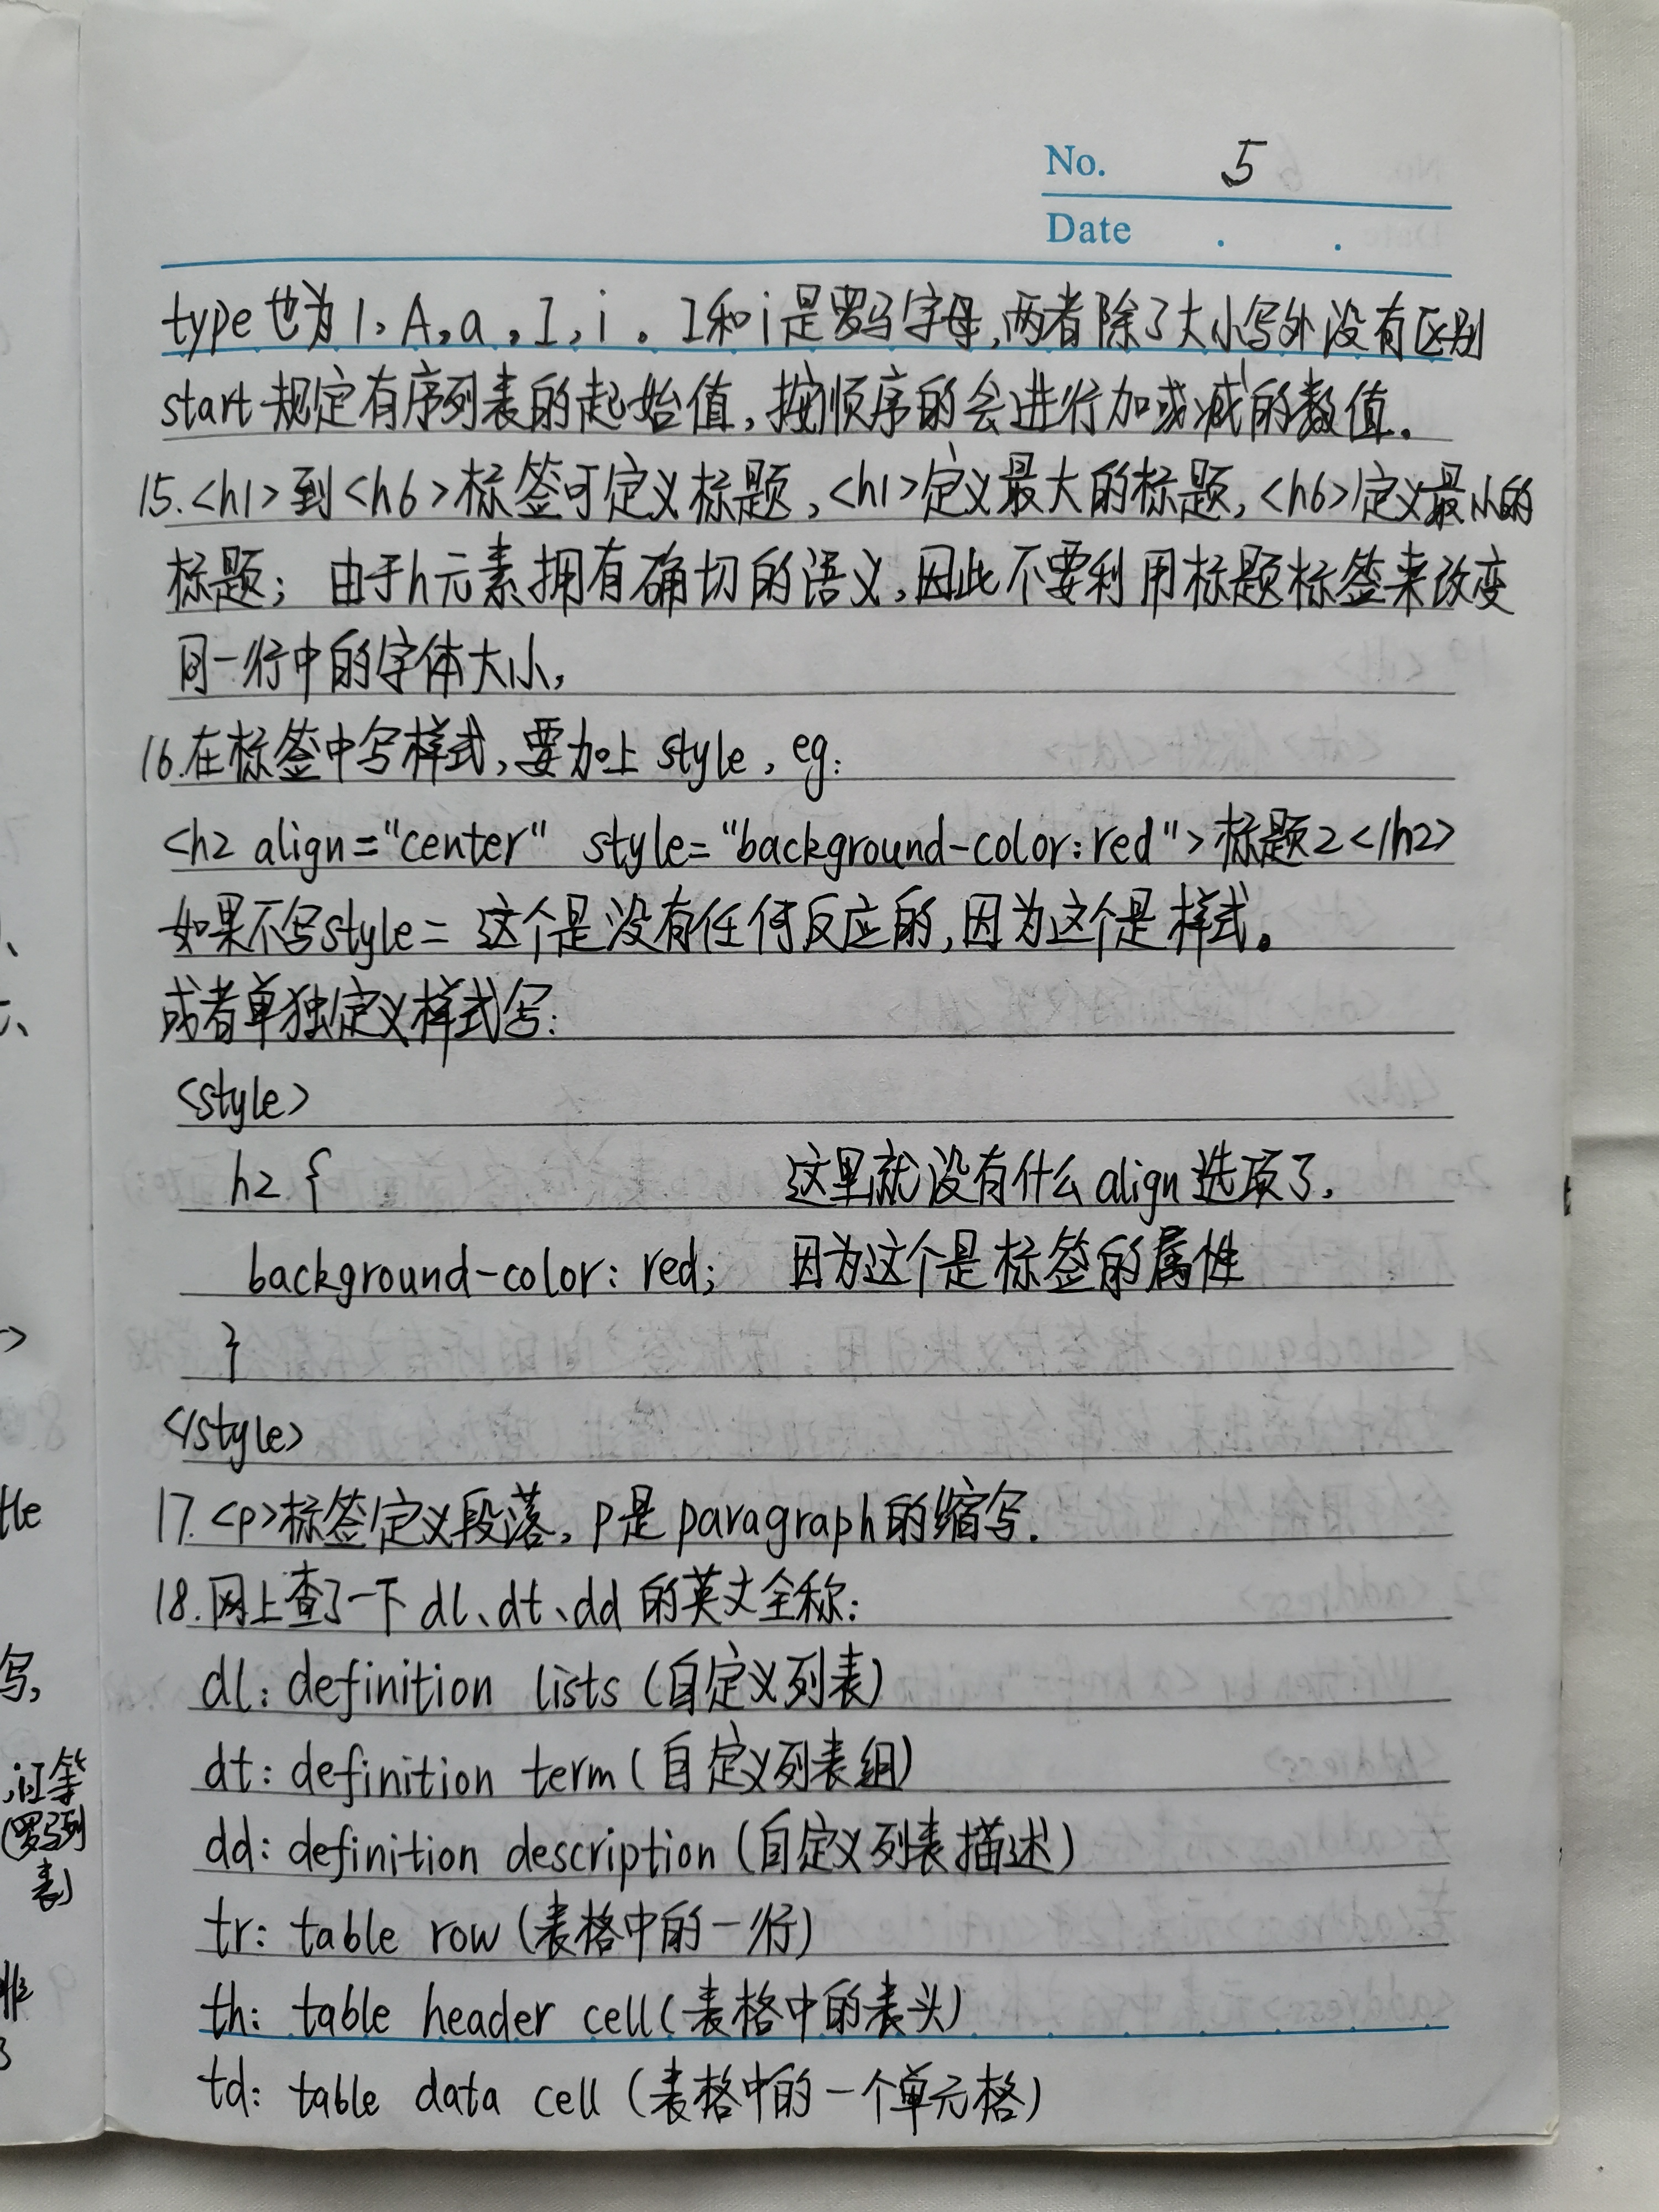 No. 5
Date . .
type也为1,A,a,I,i。I和i是罗马字母,两者除了大小写外没有区别
start规定有序列表的起始值,按顺序的会进行加或减的数值.
15.<h1>到<h6>标签可定义标题,<h1>定义最大的标题,<h6>定义最小的
标题;由于h元素拥有确切的语义,因此不要利用标题标签来改变
同一行中的字体大小,
16.在标签中写样式,要加上style,eg:
<h2 align="center" style="background-color:red">标题2</h2>
如果不写style=这个是没有任何反应的,因为这个是样式。
或者单独定义样式写:
<style>
h2 { 这里就没有什么align选项了,
background-color: red; 因为这个是标签的属性
}
</style>
17.<p>标签定义段落,p是paragraph的缩写.
18.网上查了一下dl、dt、dd的英文全称:
dl: definition lists (自定义列表)
dt: definition term (自定义列表组)
dd: definition description (自定义列表描述)
tr: table row (表格中的一行)
th: table header cell (表格中的表头)
td: table data cell (表格中的一个单元格)